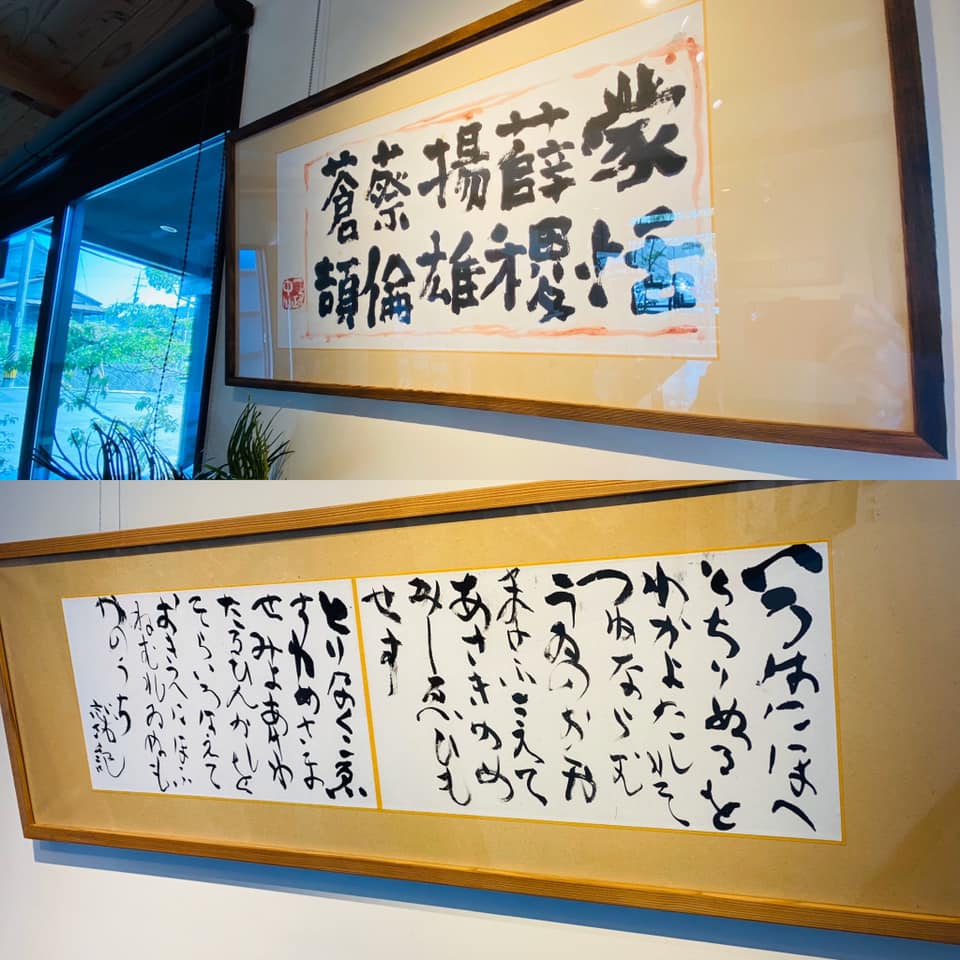 蒙恬
薛稷
揚雄
蔡倫
蒼頡
いろはにほへ
とちりぬるを
わかよたれそ
つねならむ
うゐのおくや
まけふこえて
あさきゆめ
みしゑひも
せす
とりなくこゑ
すゆめさま
せみよあけわ
たるひんかしを
そらいろはえて
おきつへにほふ
ねむれゐぬも
やのうち